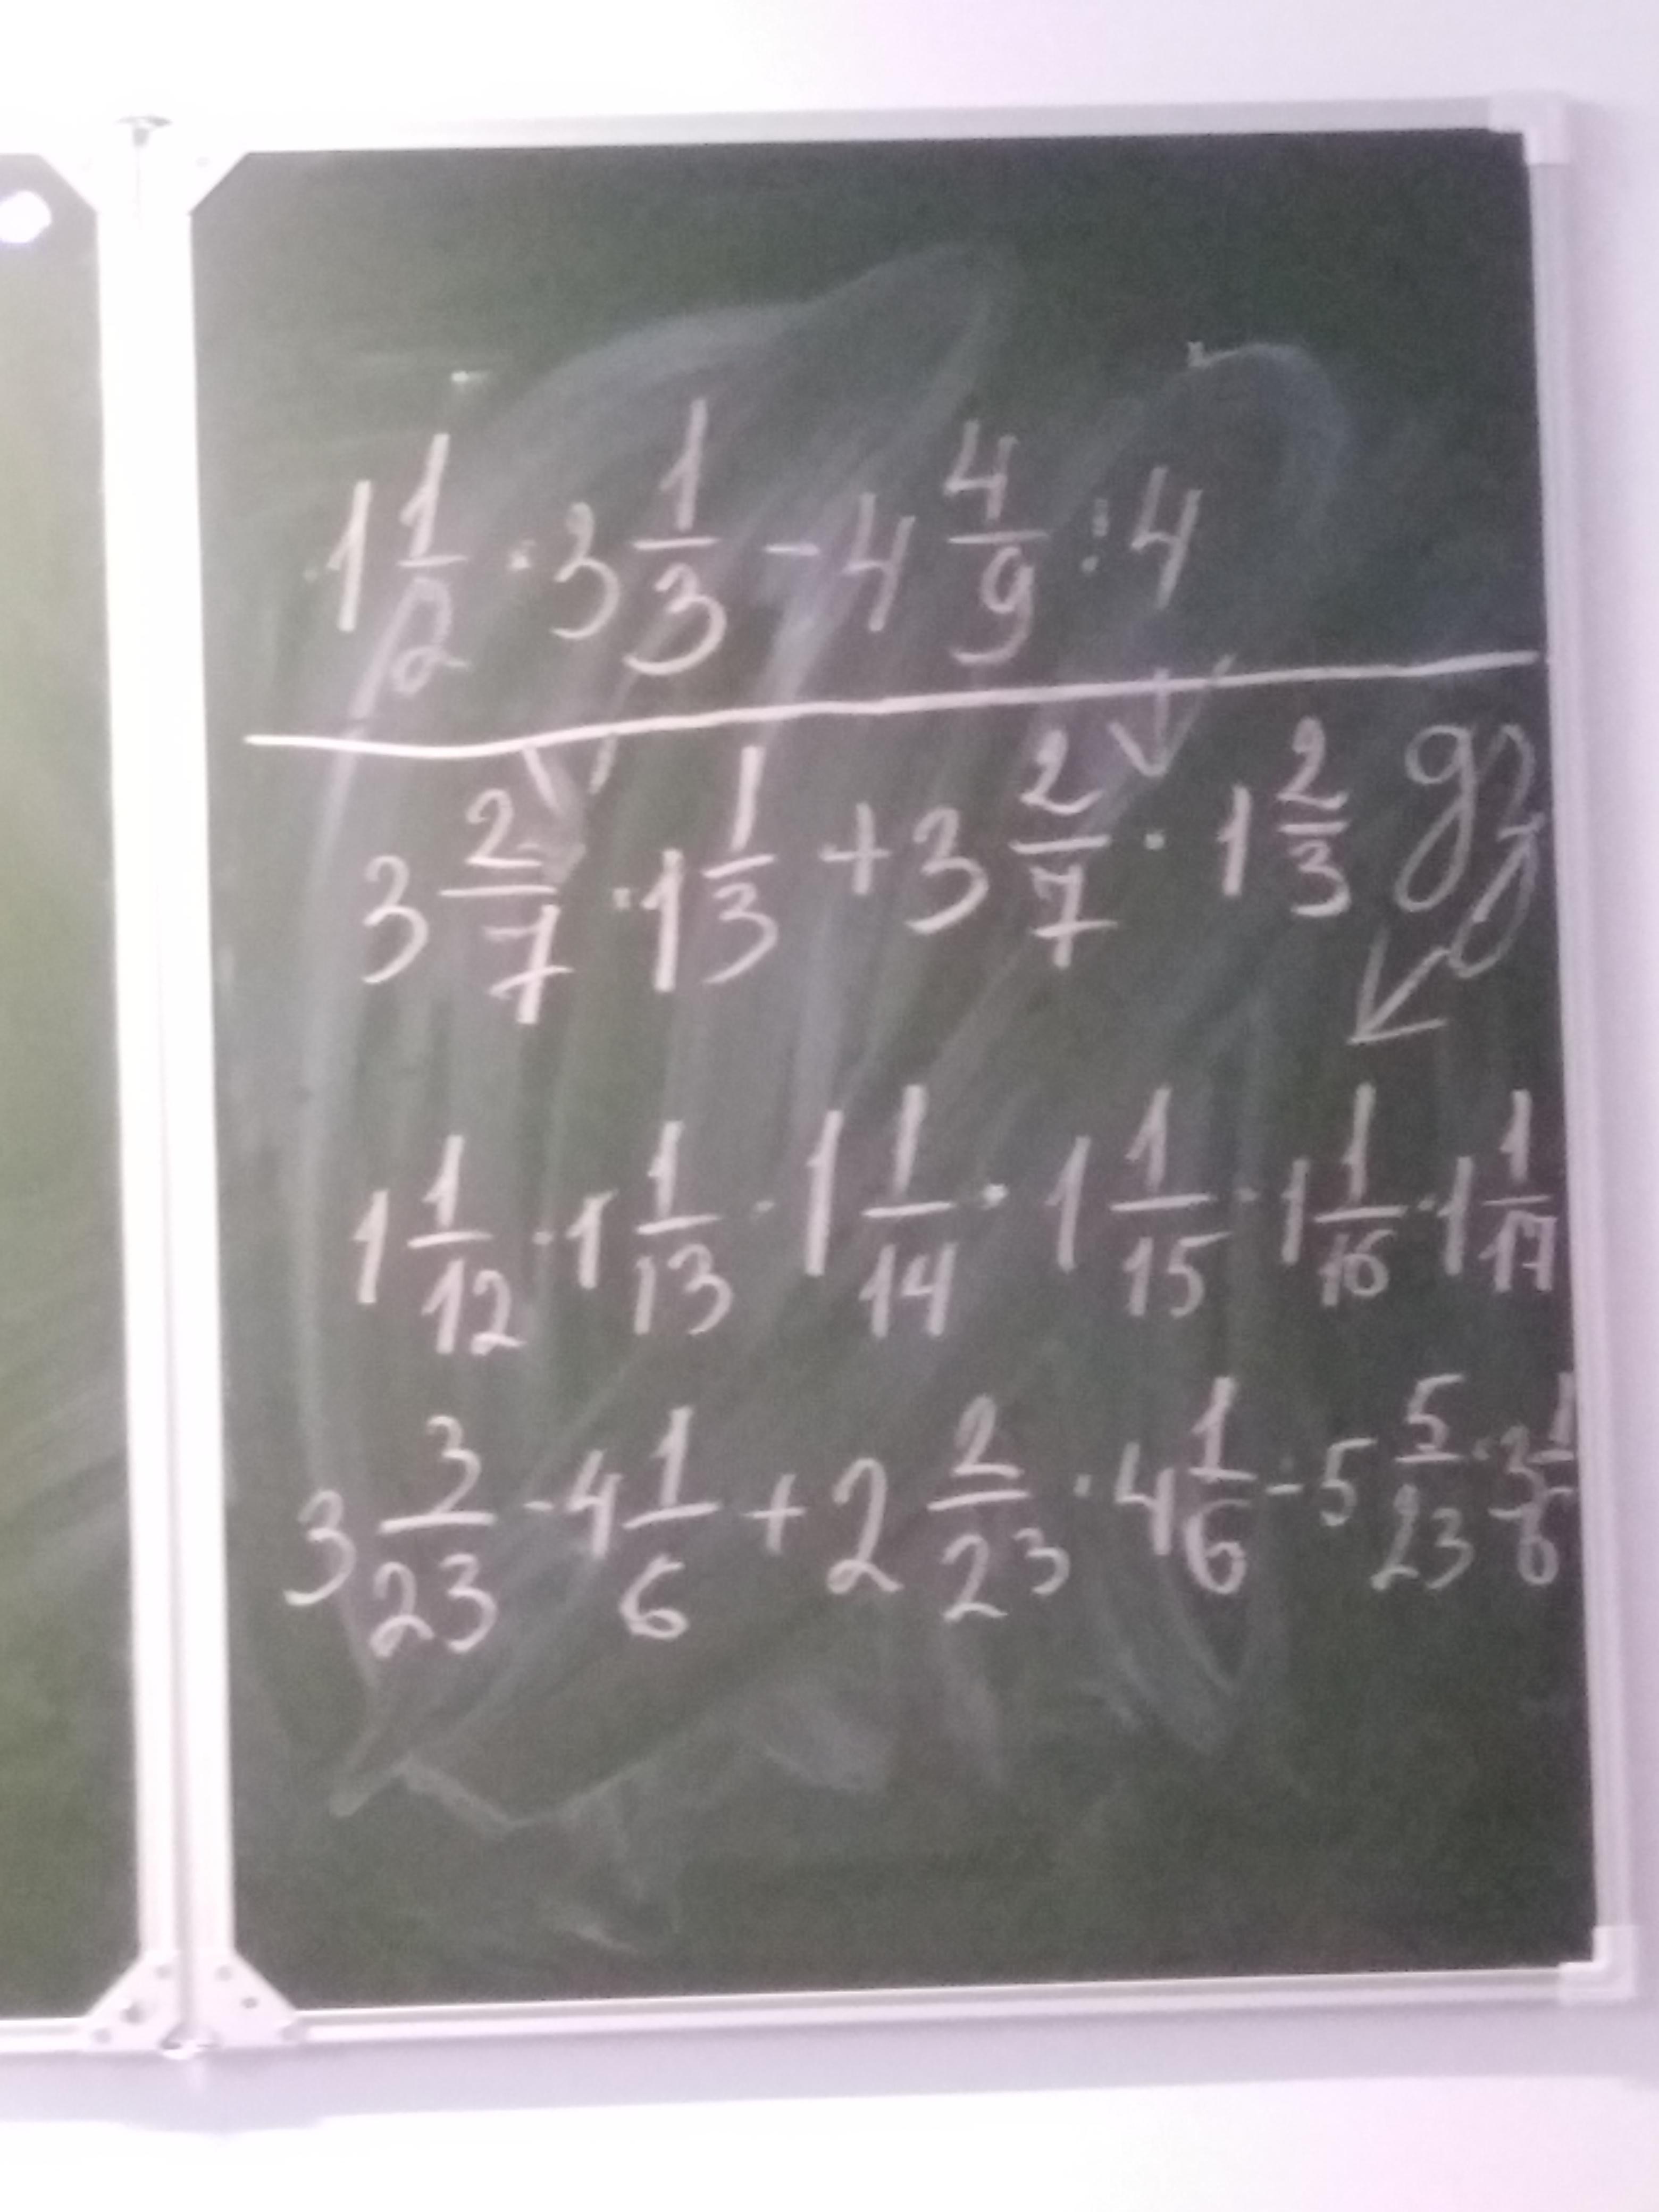 1 1/2 · 3 1/3 - 4 4/9 : 4
3 2/7 · 1 1/3 + 3 2/7 · 1 2/3
1 1/12 · 1 1/13 · 1 1/14 · 1 1/15 · 1 1/16 · 1 1/17
3 3/23 · 4 1/6 + 2 2/23 · 4 1/6 - 5 5/23 · 3 1/6